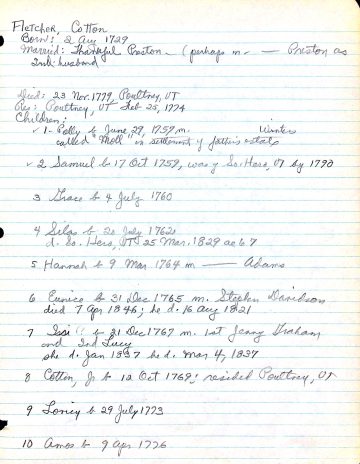 Fletcher, Cotton
Born: 2 Aug 1729
Married: Thankful Preston - (perhaps m - — Preston as
2nd husband
Died: 23 Nov. 1779, Poultney, VT
Res: Poultney, VT Feb 25, 1774
Children:
✓ 1 - Polly b June 29, 1759 m. Winters
called "Moll" in settlement of father's estate
✓ 2 Samuel b 17 Oct 1759, was of So. Hero, VT by 1790
3 Grace b 4 July 1760
4 Silas b 20 July 1762
d. So. Hero, VT 25 Mar. 1829 ae 67
5 Hannah b 9 Mar 1764 m —— Adams
6 Eunice b 31 Dec 1765 m. Stephen Davidson
died 7 Apr 1846; he d. 16 Aug 1821
7 b 31 Dec 1767 m. 1st Jenny Graham
and 2nd Lucy
she d. Jan 1837 he d. Mar 4, 1837
8 Cotton, Jr b 12 Oct 1769; resided Poultney, VT
9 b 29 July 1773
10 Amos b 9 Apr 1776